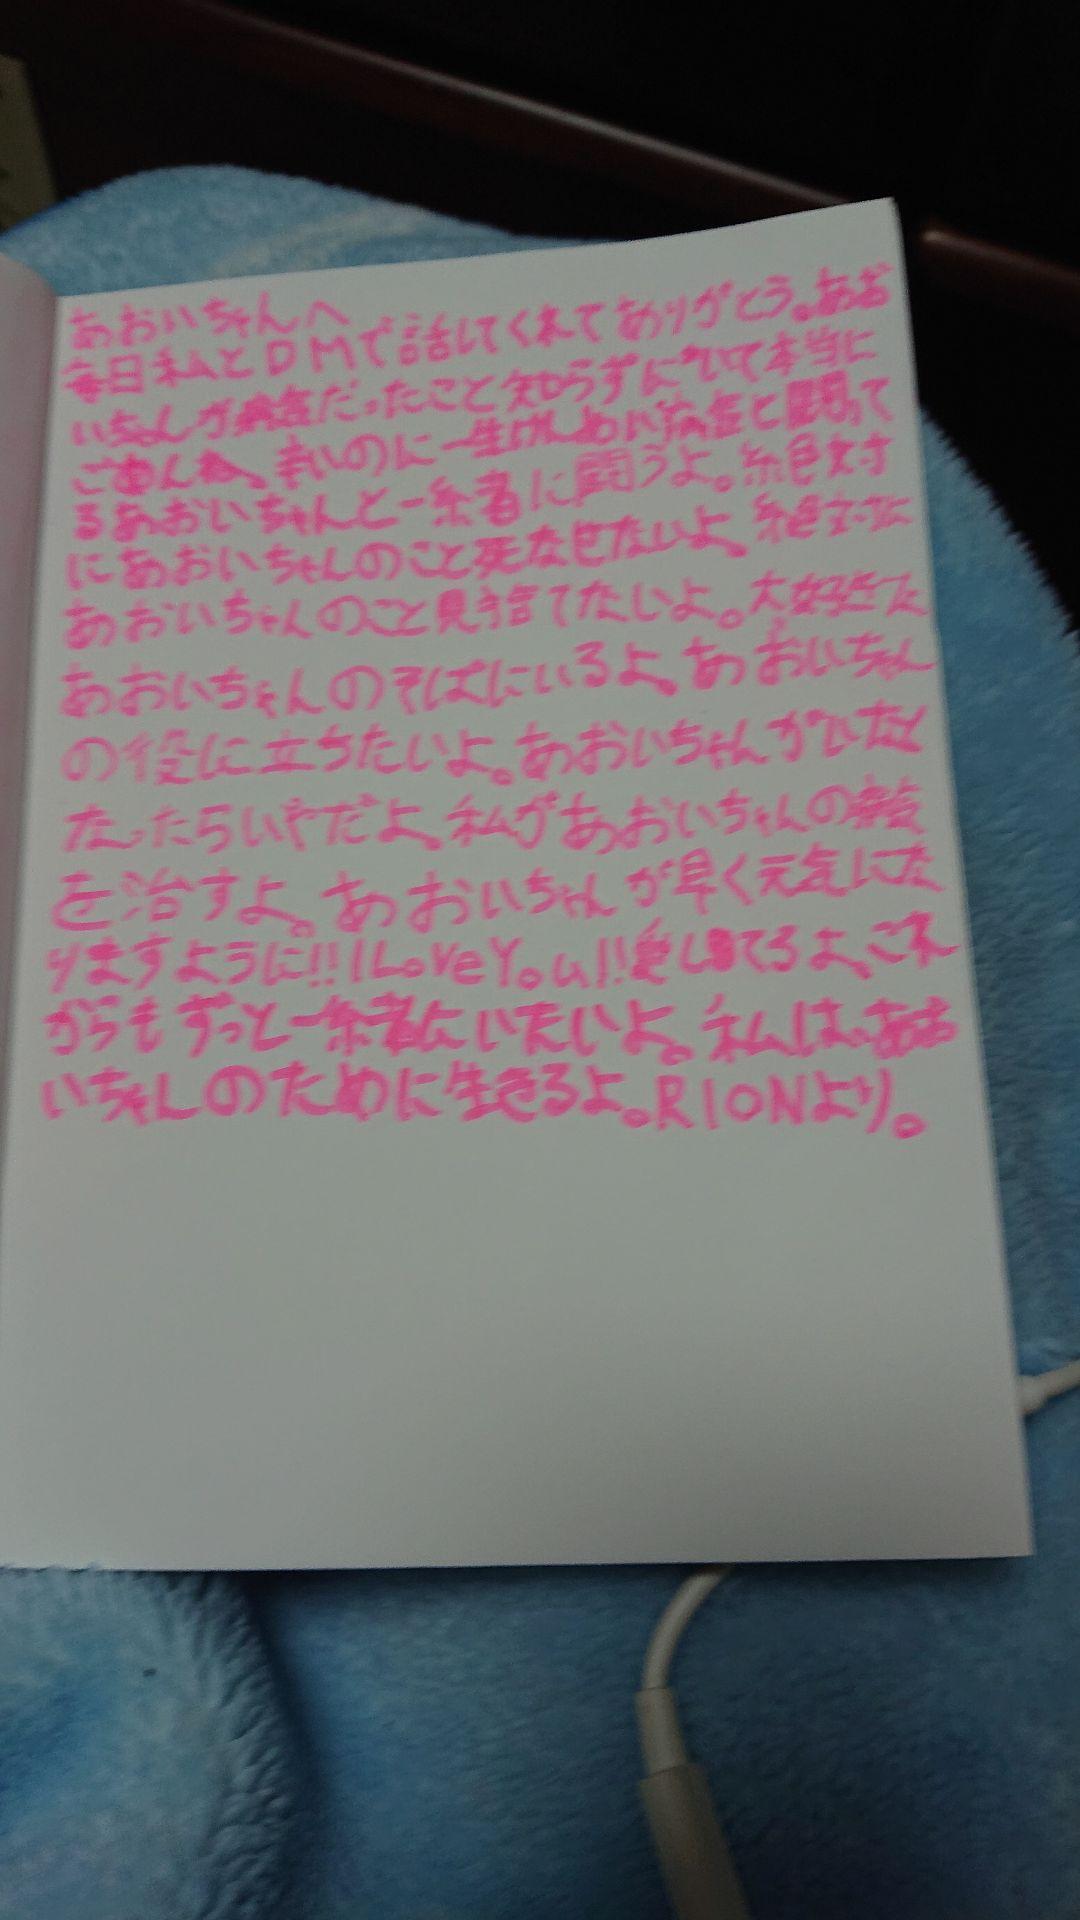 あおいちゃんへ
毎日私とDMで話してくれてありがとう。あお
いちゃんが病気だったこと知らずにいて本当に
ごめんね。辛いのに一生けんめい病気と闘って
るあおいちゃんと一緒に闘うよ。絶対
にあおいちゃんのこと死なせないよ。絶対に
あおいちゃんのこと見捨てないよ。大好きな
あおいちゃんのそばにいるよ。あおいちゃん
の役に立ちたいよ。あおいちゃんがいなく
なったらいやだよ。私があおいちゃんの病気
を治すよ。あおいちゃんが早く元気にな
りますように!!I LoveYou!!愛してるよ。これ
からもずっと一緒にいたいよ。私は、あお
いちゃんのために生きるよ。RIONより。